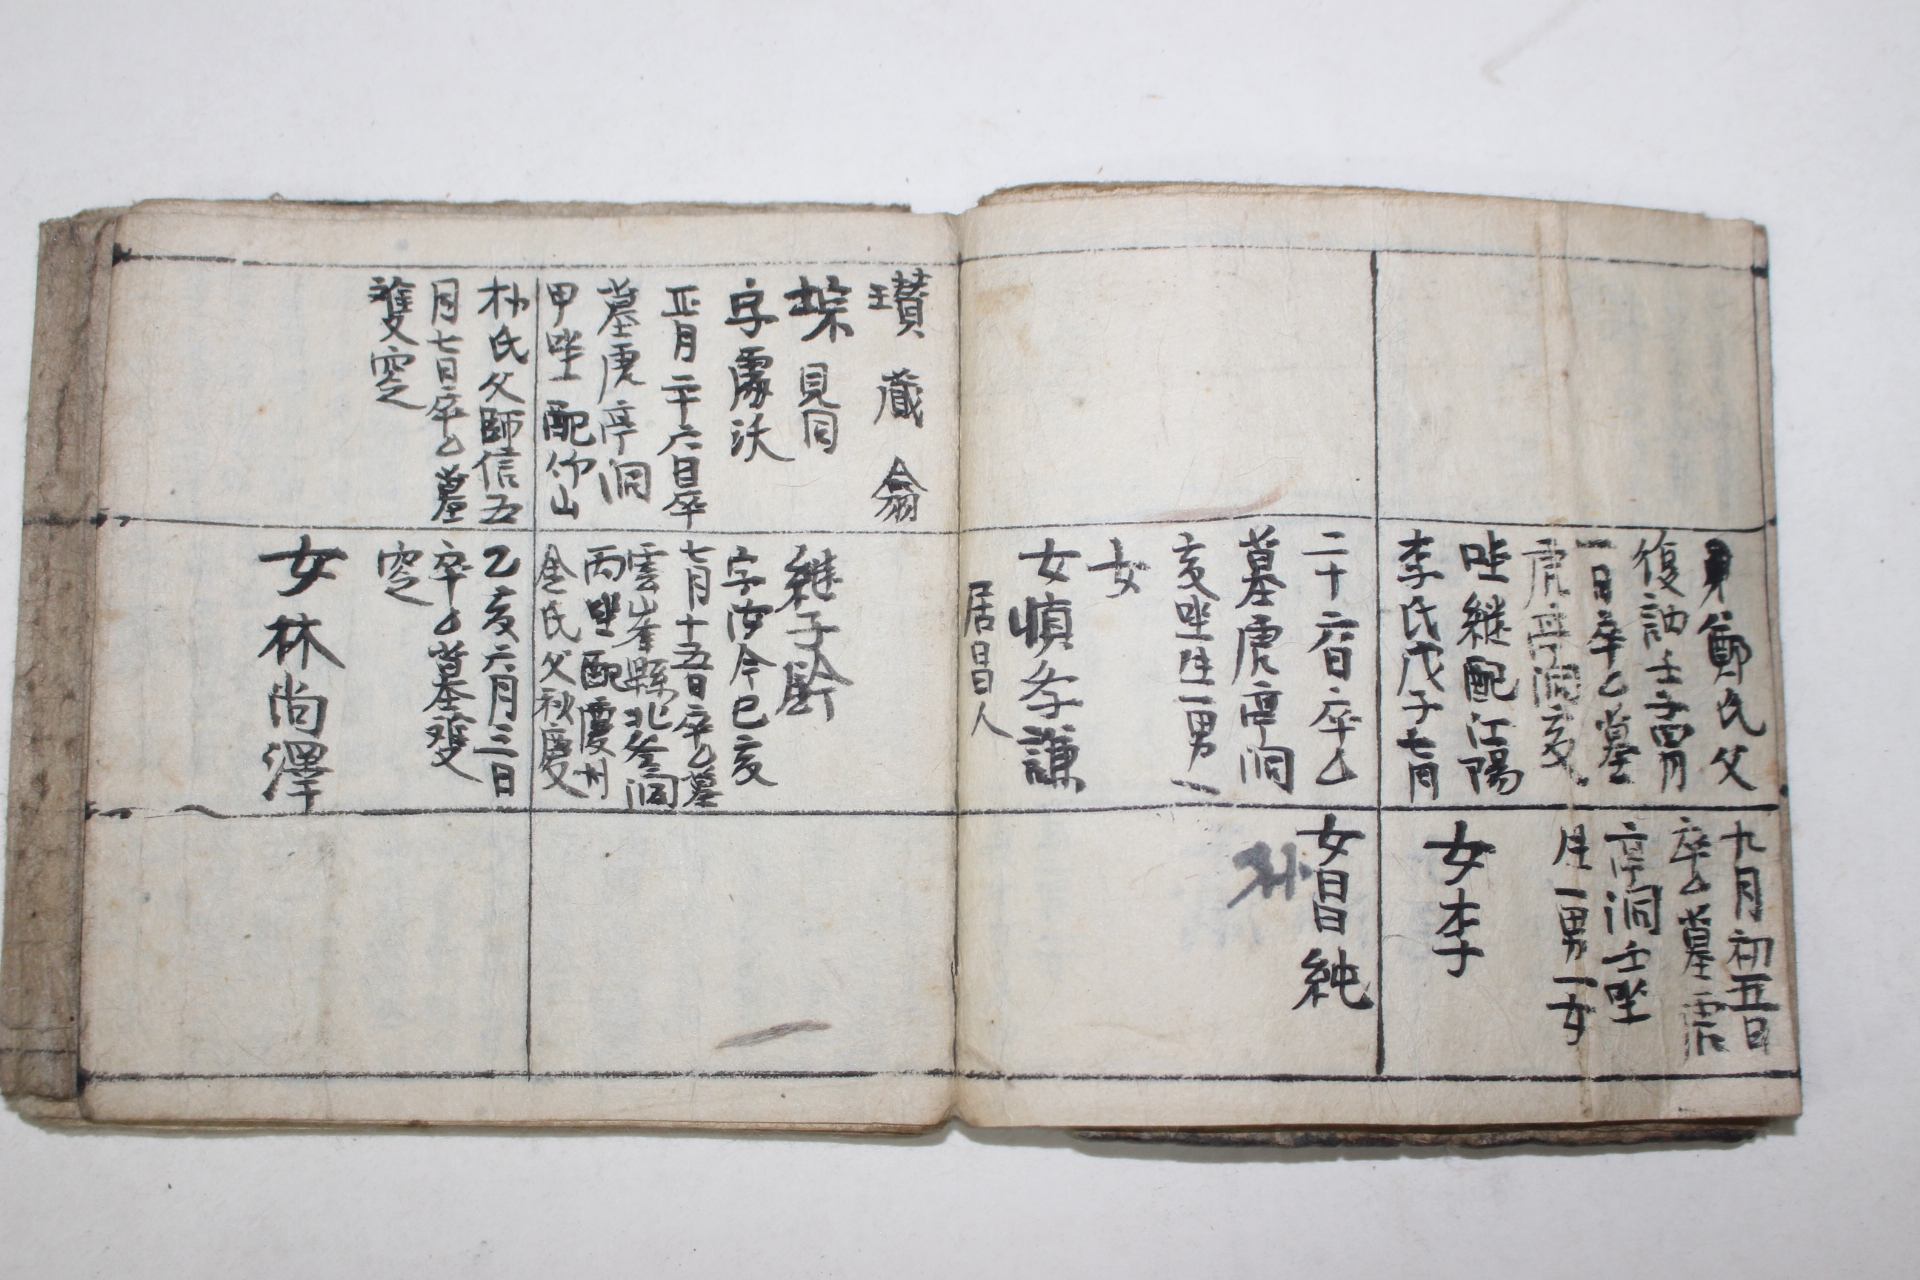 鄭氏父
復訥壬子四月
一日卒乙墓
虎亭洞亥
坐継配江陽
李氏戊子七月
二十六日卒乙
墓虎亭洞
亥坐生一男一
女
女慎冬謙
居昌人
九月初五日
卒乙墓虎
亭洞壬坐
生一男一女
女李
女昌純
瓚 蔵 翕
見同
字沃
正月二十六日卒
墓虎亭洞
甲坐 配竹山
朴氏父師信五
月七日卒乙墓
雙窆
継子齡
字汝今己亥
七月十五日卒乙墓
雲峯縣北釜洞
丙坐配慶州
金氏父秋慶
乙亥六月三日
卒乙墓雙
窆
女林尚澤